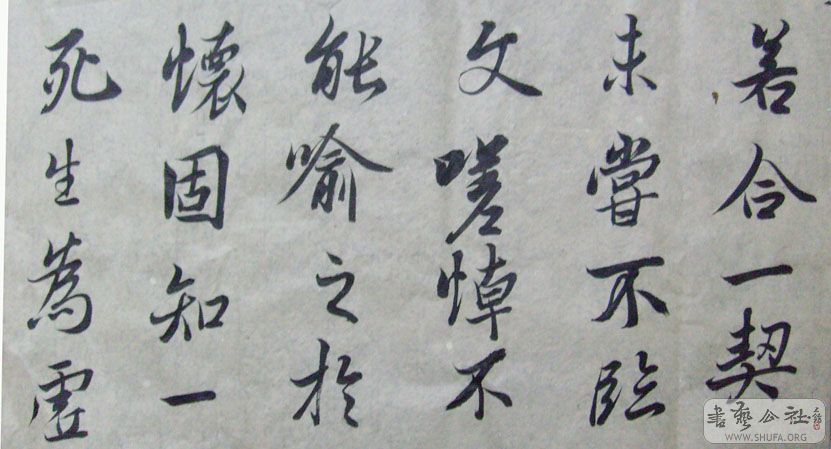 若合一契
未嘗不臨
文嗟悼不
能喻之於
懷固知一
死生為虛
書藝公社
WWW.SHUFA.ORG